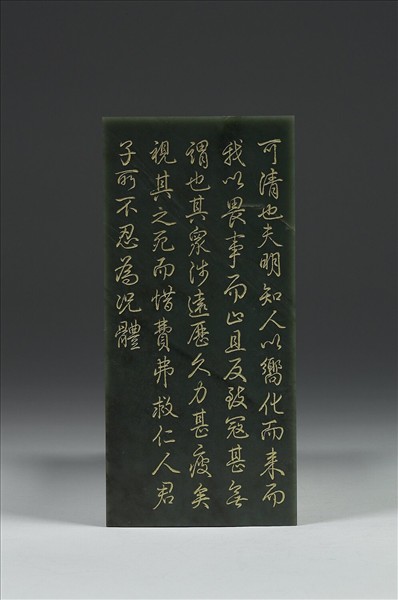 可清也夫明知人以嚮化而来而
我以畏事而止且反致寇甚無
謂也其衆涉遠歷久力甚疲矣
視其之死而惜費弗救仁人君
子所不忍為况體